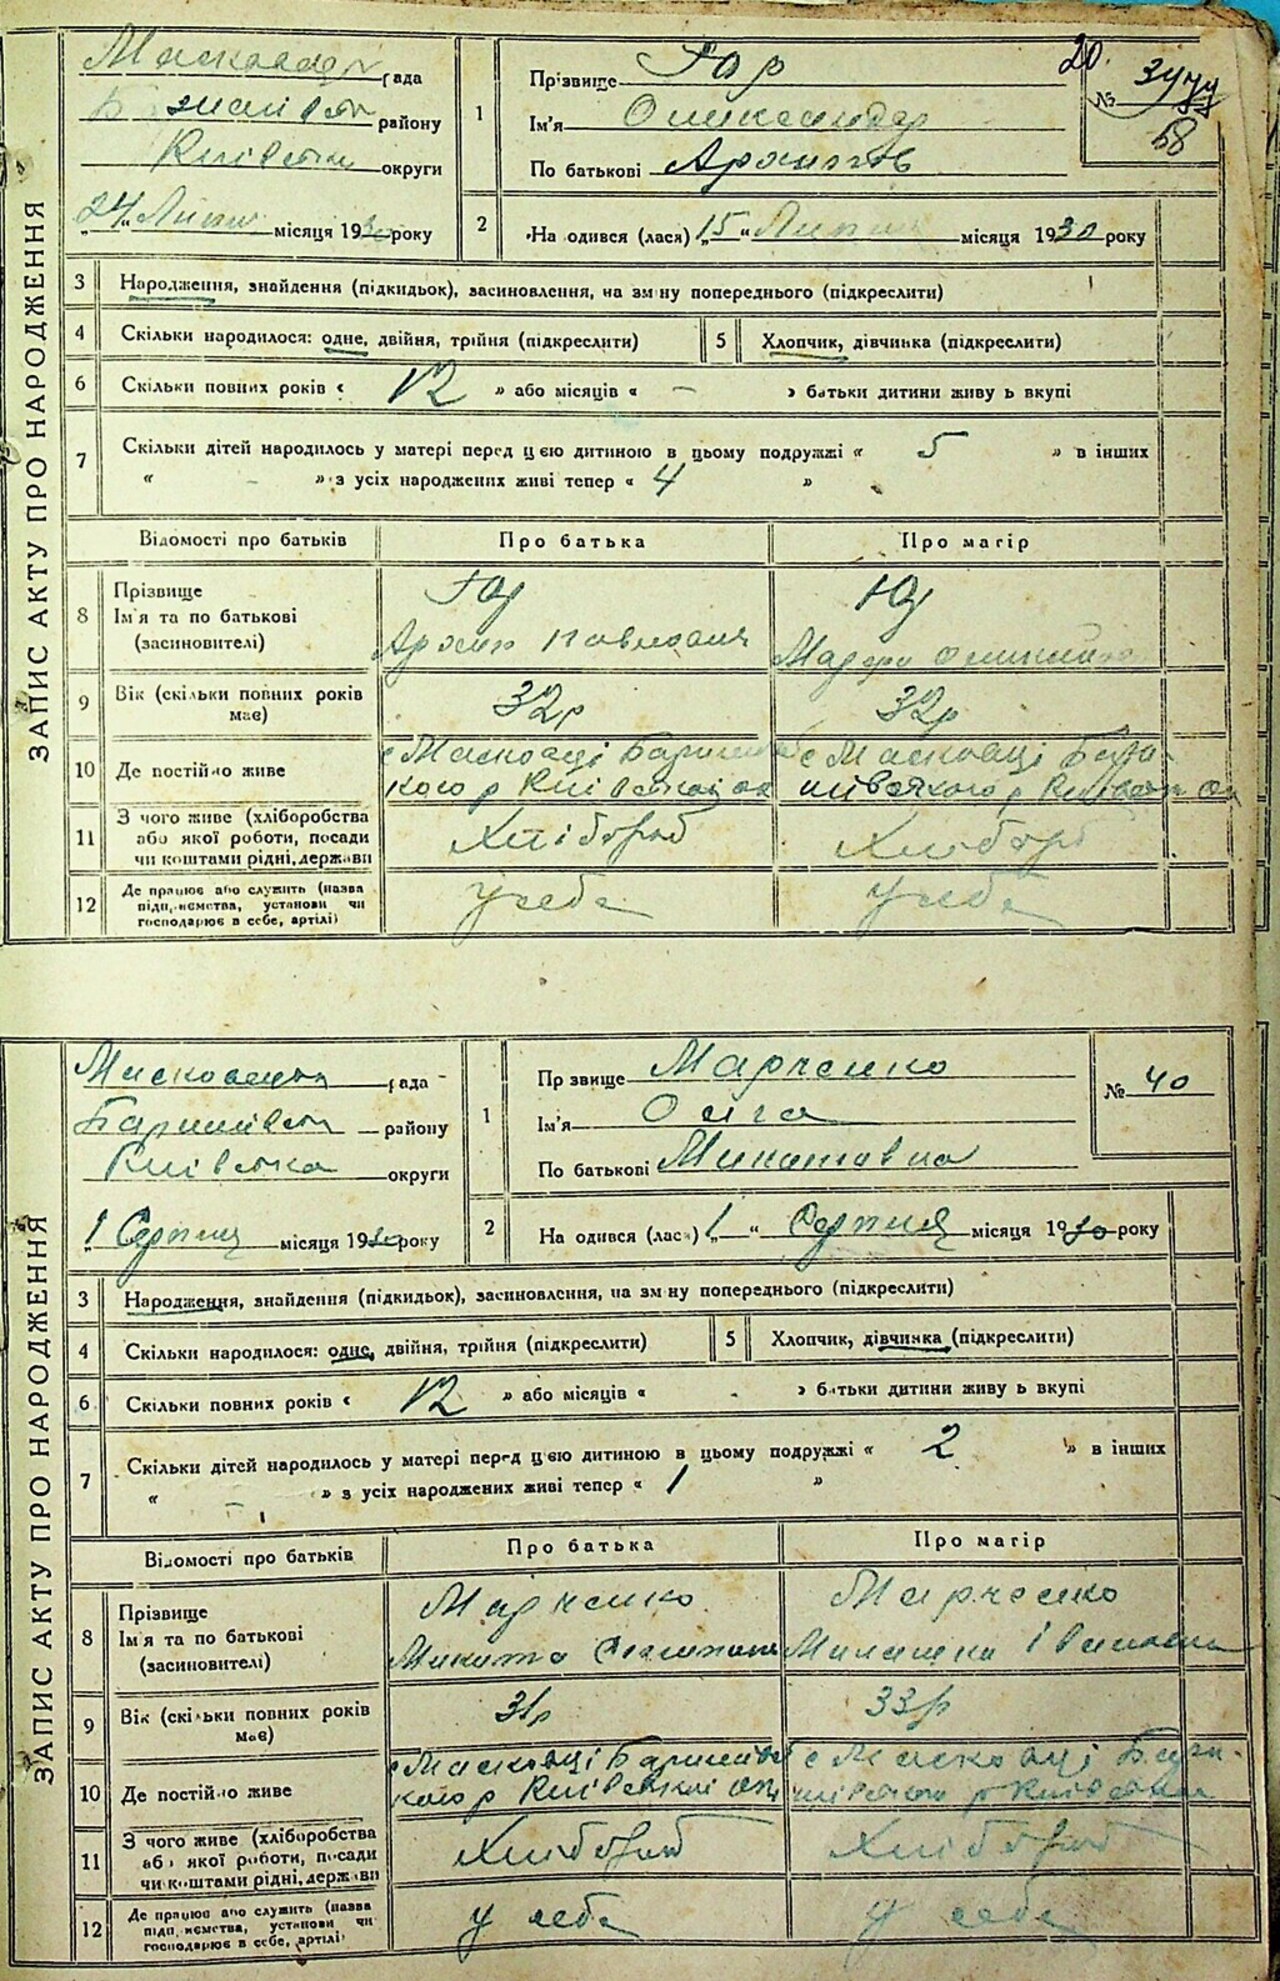 ЗАПИС АКТУ ПРО НАРОДЖЕННЯ
рада
району
Київська округи
24 Липня місяця 1930 року
1
Прізвище Гор
Ім'я Олександер
По батькові Архипов
20.
№
68
2
На одився (лася) „15“ Липня місяця 1930 року
3 Народження, знайдення (підкидьок), засиновлення, на зм ну попереднього (підкреслити)
4 Скільки народилося: одне, двійня, трійня (підкреслити)
5 Хлопчик, дівчинка (підкреслити)
6 Скільки повних років « 12 » або місяців « – » батьки дитини живу ь вкупі
7 Скільки дітей народилось у матері перед цією дитиною в цьому подружжі « 5 » в інших
« – » з усіх народжених живі тепер « 4 »
Відомості про батьків Про батька Про матір
8 Прізвище
Ім'я та по батькові
(засиновителі)
Гор
Архип Павлович
Гор
9 Вік (скільки повних років
має)
32р
32р
10 Де постійно живе
с Масковці
кого р Київської ок
с Масковці Бари-
шівського р Київськ ок
11 З чого живе (хліборобства
або якої роботи, посади
чи коштами рідні, держави
Хлібороб
Хлібороб
12 Де працює або служить (назва
підприємства, установи чи
господарює в себе, артілі)
у себе
у себе
ЗАПИС АКТУ ПРО НАРОДЖЕННЯ
Масковецька рада
Баришівськ району
Київська округи
„1 Серпня місяця 1930 року
1
Пр звище Марченко
Ім'я Ольга
По батькові Микитовна
№ 40
2
На одився (лася) „1 “ Серпня місяця 1930 року
3 Народження, знайдення (підкидьок), засиновлення, на зм ну попереднього (підкреслити)
4 Скільки народилося: одне, двійня, трійня (підкреслити)
5 Хлопчик, дівчинка (підкреслити)
6 Скільки повних років « 12 » або місяців « - » батьки дитини живу ь вкупі
7 Скільки дітей народилось у матері перед цією дитиною в цьому подружжі « 2 » в інших
« – » з усіх народжених живі тепер « 1 »
Відомості про батьків Про батька Про матір
8 Прізвище
Ім'я та по батькові
(засиновителі)
Марченко
Микита
Марченко
Милашка Івановна
9 Вік (скільки повних років
має)
31р
33р
10 Де постійно живе
с Масковці Баришівс
кого р Київської окр
с Масковці Бари-
р Київської
11 З чого живе (хліборобства
або якої роботи, посади
чи коштами рідні, держави
Хлібороб
Хлібороб
12 Де працює або служить (назва
підприємства, установи чи
господарює в себе, артілі)
у себе
у себе